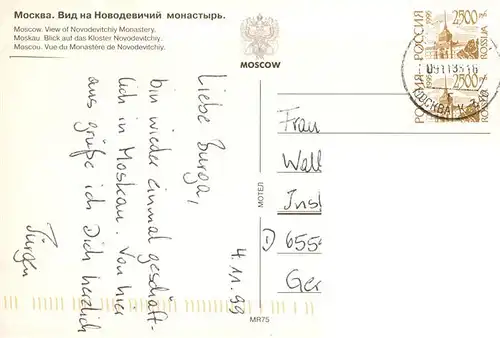 Москва. Вид на Новодевичий монастырь.
Moscow. View of Novodevitchiy Monastery.
Moskau. Blick auf das Kloster Novodevitchiy.
Moscou. Vue du Monastère de Novodevitchiy.
MOSCOW
4.11.99
Liebe Burga,
bin wieder einmal geschäft-
lich in Moskau. Von hier
aus grüße ich Dich herzlich
Jürgen
МОТЕЛ
MR75
РОССИЯ 1995 2500 ROSSIJA
РОССИЯ 1995 2500 ROSSIJA
МОСКВА
Frau
Wall
Inst
D 655
Ger